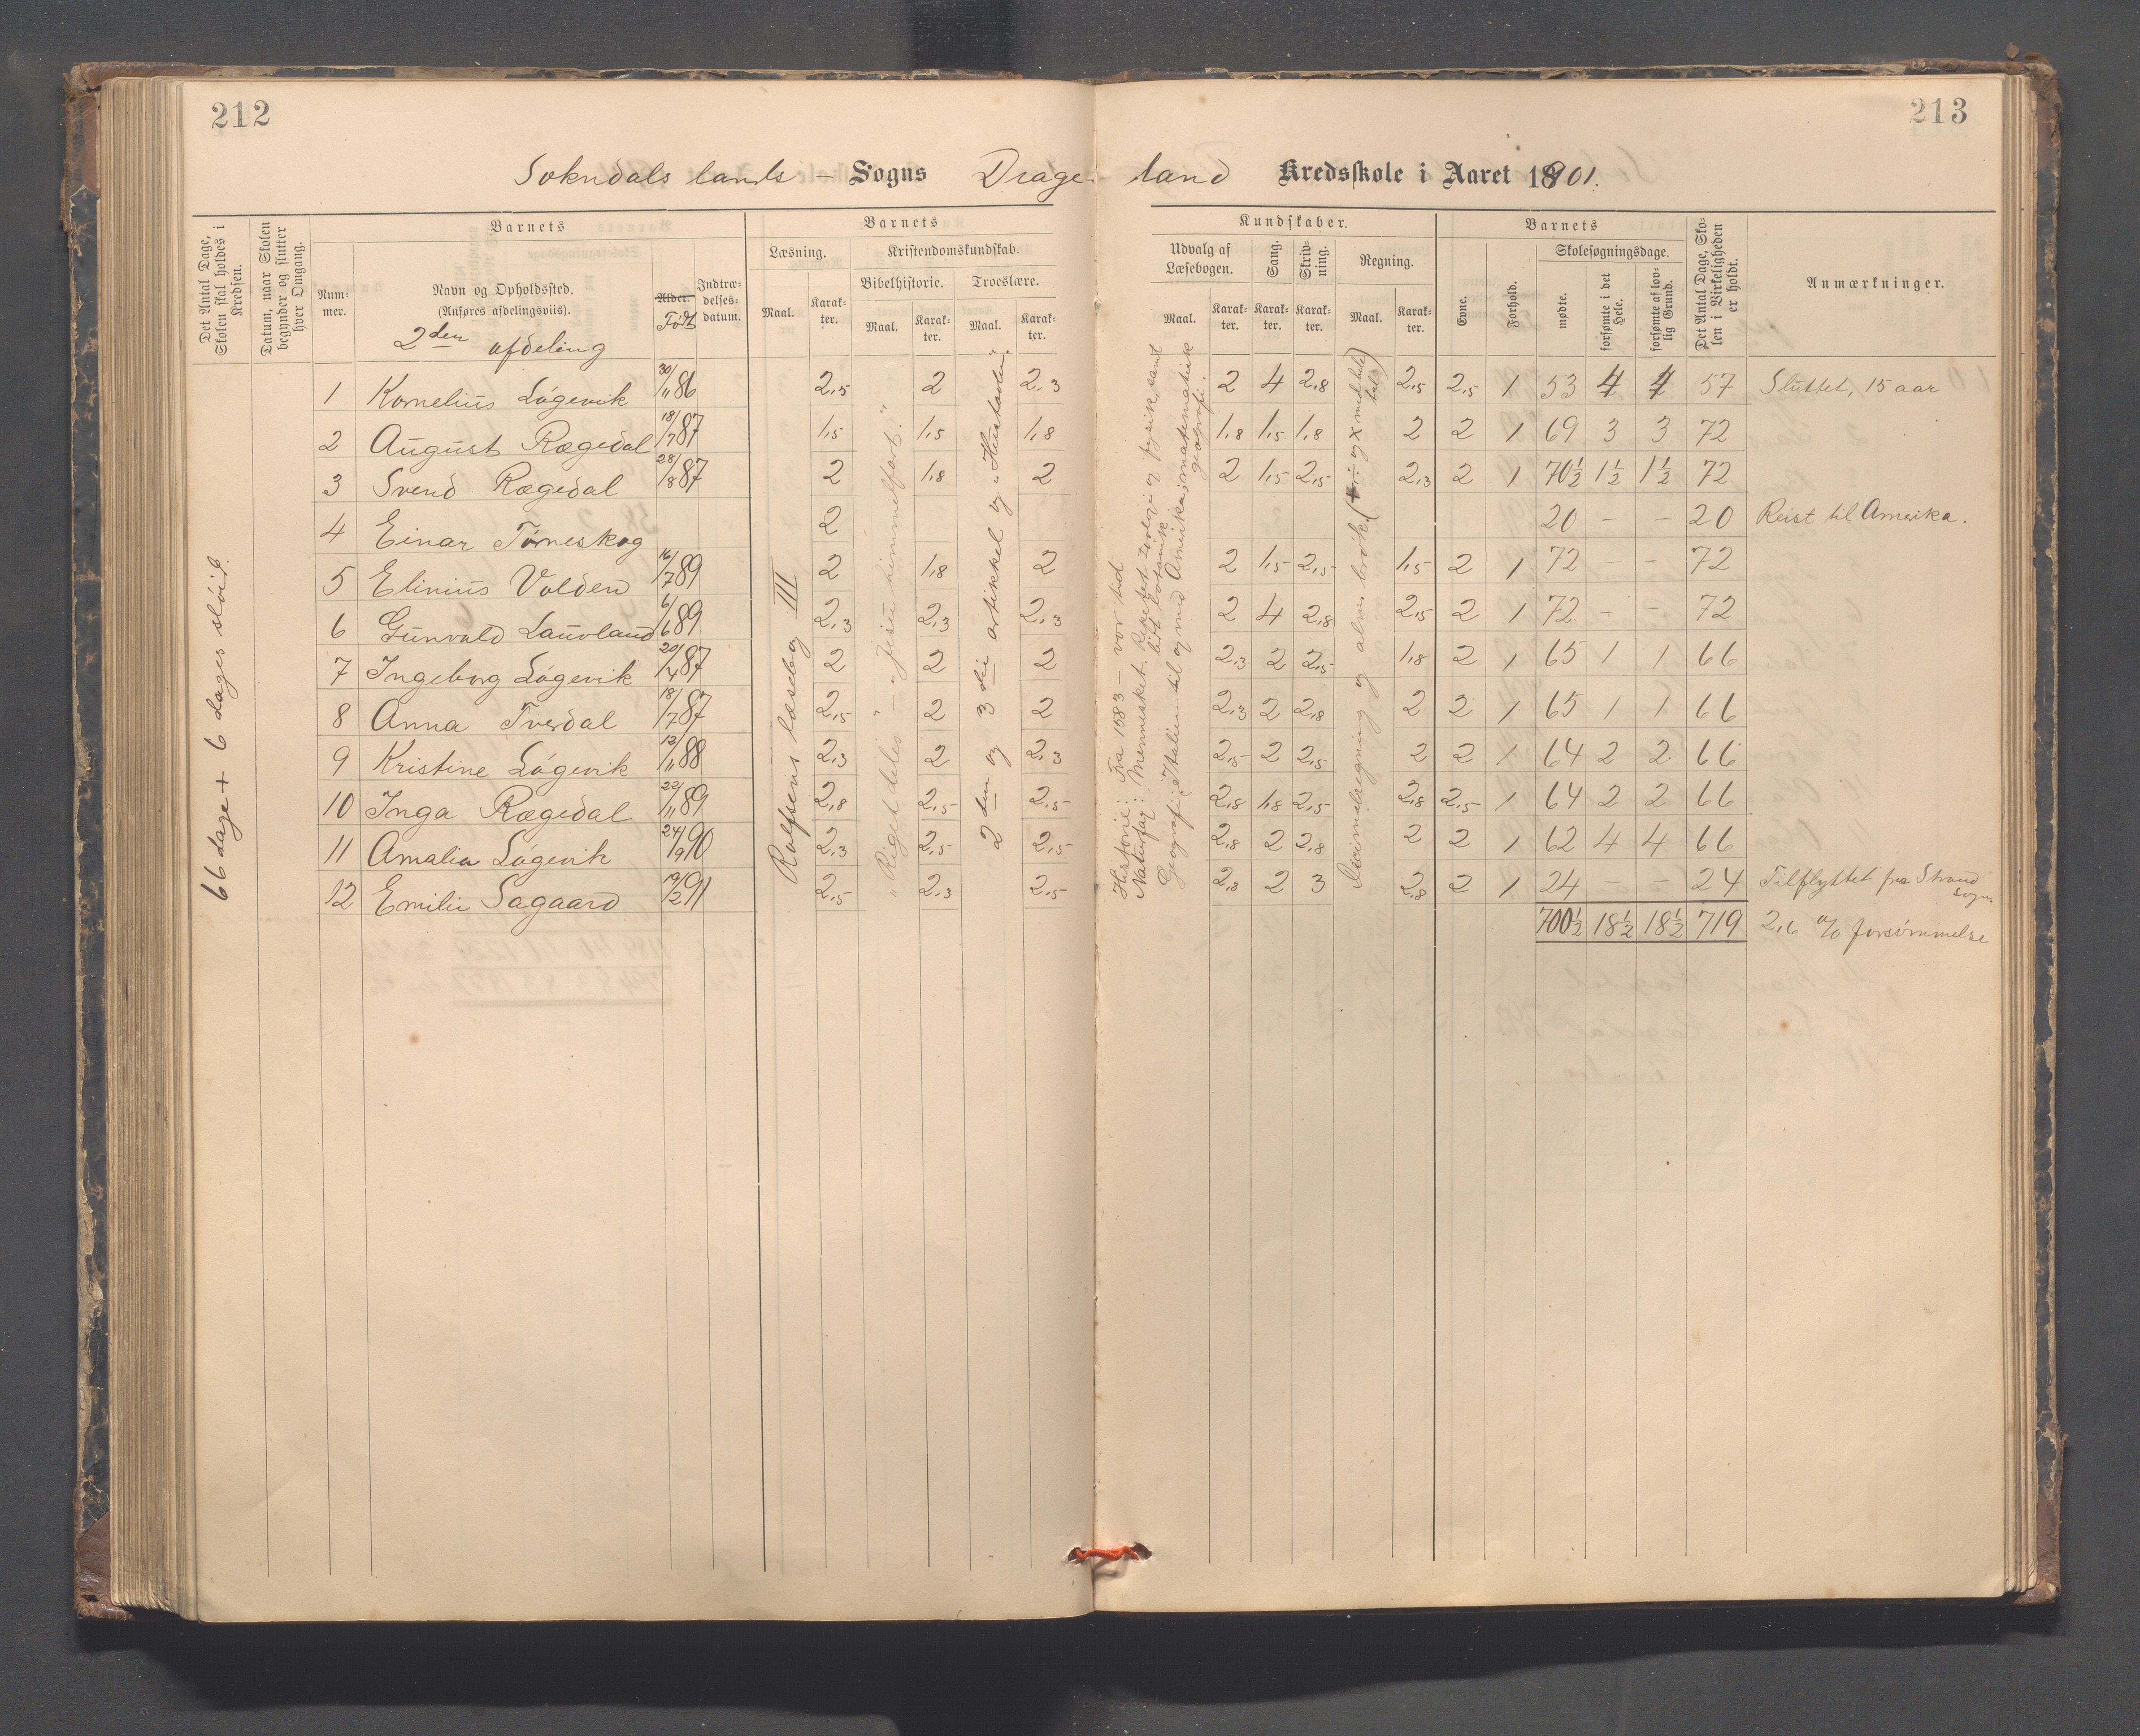 212
213
Sokndals lands – Sogns Drageland Kredsskole i Aaret 1901.
Det Antal Dage, Skolen skal holdes i Kredsen.
Datum, naar Skolen begynder og slutter hver Omgang.
Barnets
Num-mer.
Navn og Opholdssted.
(Anføres afdelingsviis).
2den afdeling
Alder. Født
Indtræ-delses-datum.
Barnets
Læsning.
Maal. Karak-ter.
Kristendomskundskab.
Bibelhistorie. Troeslære.
Maal. Karak-ter. Maal. Karak-ter.
Kundskaber.
Udvalg af Læsebogen. Sang. Skriv-ning. Regning.
Maal. Karak-ter. Karak-ter. Karak-ter. Maal. Karak-ter.
Barnets
Evne. Forhold.
Skolesøgningsdage.
mødte. forsømte i det Hele. forsømte af lov-lig Grund.
Det Antal Dage, Sko-len i Virkeligheden er holdt.
Anmærkninger.
66 dage + 6 dages sløid.
Rolfsens læsebog III
"Riget deles" – "Jesu himmelfart."
2den og 3die artikkel og "Hustavlen".
Historie: Fra 1583 – vor tid
Naturfag: Mennesket. Repetert zoologi og fysik, samt litt botanik
Geografi: Italien til og med Amerika; matematisk geografi.
Decimalregning og alm. brøk. (+ – og × med hele tal)
1 Kornelius Løgevik 30/11 86 2,5 2 2,3 2 4 2,8 2,5 2,5 1 53 4 4 57 Sluttet, 15 aar
2 August Rægedal 18/7 87 1,5 1,5 1,8 1,8 1,5 1,8 2 2 1 69 3 3 72
3 Svend Rægedal 28/8 87 2 1,8 2 2 1,5 2,5 2,3 2 1 70½ 1½ 1½ 72
4 Einar Tørneskog 2 20 – – 20 Reist til Amerika.
5 Elinius Valden 16/7 89 2 1,8 2 2 1,5 2,5 1,5 2 1 72 – – 72
6 Gunvald Lauvland 6/6 89 2,3 2,3 2,3 2 4 2,8 2,5 2 1 72 – – 72
7 Ingeborg Løgevik 20/4 87 2 2 2 2,3 2 2,5 1,8 2 1 65 1 1 66
8 Anna Tverdal 18/7 87 2,5 2 2 2,3 2 2,8 2 2 1 65 1 1 66
9 Kristine Løgevik 12/11 88 2,3 2 2,3 2,5 2 2,5 2 2 1 64 2 2 66
10 Inga Rægedal 22/11 89 2,8 2,5 2,5 2,8 1,8 2,5 2,8 2,5 1 64 2 2 66
11 Amalia Løgevik 24/9 90 2,3 2,5 2,5 2,8 2 2,8 2 2 1 62 4 4 66
12 Emilie Sagaard 19/2 91 2,5 2,3 2,5 2,8 2 3 2,8 2 1 24 – – 24 Tilflyttet fra Strand sogn.
700½ 18½ 18½ 719 2,6 % forsømmelse